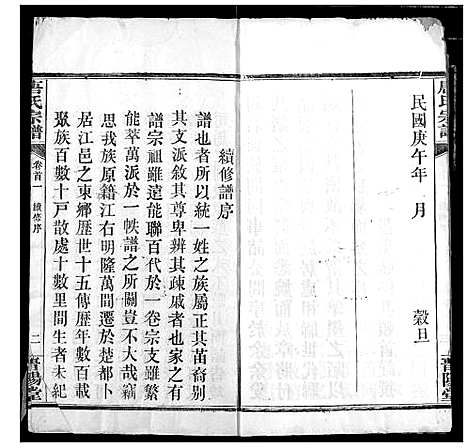 唐氏宗譜
民國庚午年 月 穀旦
晉陽堂
續修譜序
譜也者所以統一姓之族屬正其苗裔別
其文派敘其尊卑辨其疎戚者也家之有
譜宗祖雖遠能聯百代於一卷宗支雖繁
能萃萬派於一帙譜之所關豈不大哉竊
思我族原籍江右明隆萬間遷於楚都卜
居江邑之東鄉歷世十五傳歷年數百載
聚族百數十戶散處十數里間生者未紀
唐氏宗譜
卷首一 續修序
二
晉陽堂